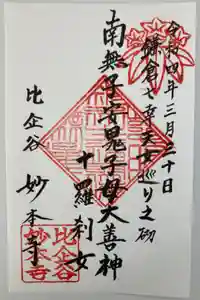 令和四年三月二十日
鎌倉七福天女巡り之砌
南無子安鬼子母大善神
十羅刹女
比企谷
妙本寺
比企谷
妙本寺